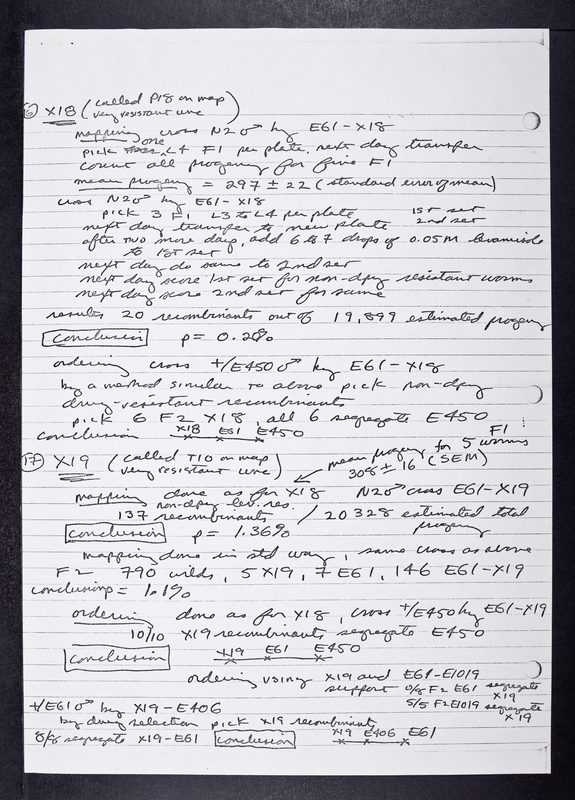 16) X18 (called P18 on map
very resistant line)
mapping cross N2♂ by E61-X18
pick one L4 F1 per plate, next day transfer
count all progeny for five F1
mean progeny = 297 ± 22 (standard error of mean)
cross N2♂ by E61-X18
pick 3 F1 L3 to L4 per plate 1st set
next day transfer to new plate 2nd set
after two more days, add 6 to 7 drops of 0.05M levamisole
to 1st set
next day do same to 2nd set
next day score 1st set for non-dpy resistant worms
next day score 2nd set for same
results 20 recombinants out of 19,899 estimated progeny
conclusion p = 0.20%
ordering cross +/E450♂ by E61-X18
by a method similar to above pick non-dpy
drug-resistant recombinants
pick 6 F2 X18, all 6 segregate E450
conclusion X18 E61 E450
17) X19 (called T10 on map
very resistant line)
mean progeny for 5 F1 worms
308 ± 16 (SEM)
mapping done as for X18 N2♂ cross E61-X19
non-dpy lev. res.
137 recombinants / 20328 estimated total
progeny
conclusion p = 1.36%
mapping done in std way, same cross as above
F2 790 wilds, 5 X19, 7 E61, 146 E61-X19
conclusion p = 1.1%
ordering done as for X18, cross +/E450 by E61-X19
10/10 X19 recombinants segregate E450
conclusion X19 E61 E450
ordering using X19 and E61-E1019
support 0/8 F2 E61 segregate X19
5/5 F2 E1019 segregate X19
+/E61♂ by X19-E406
by drug selection pick X19 recombinants
8/8 segregate X19-E61 conclusion X19 E406 E61